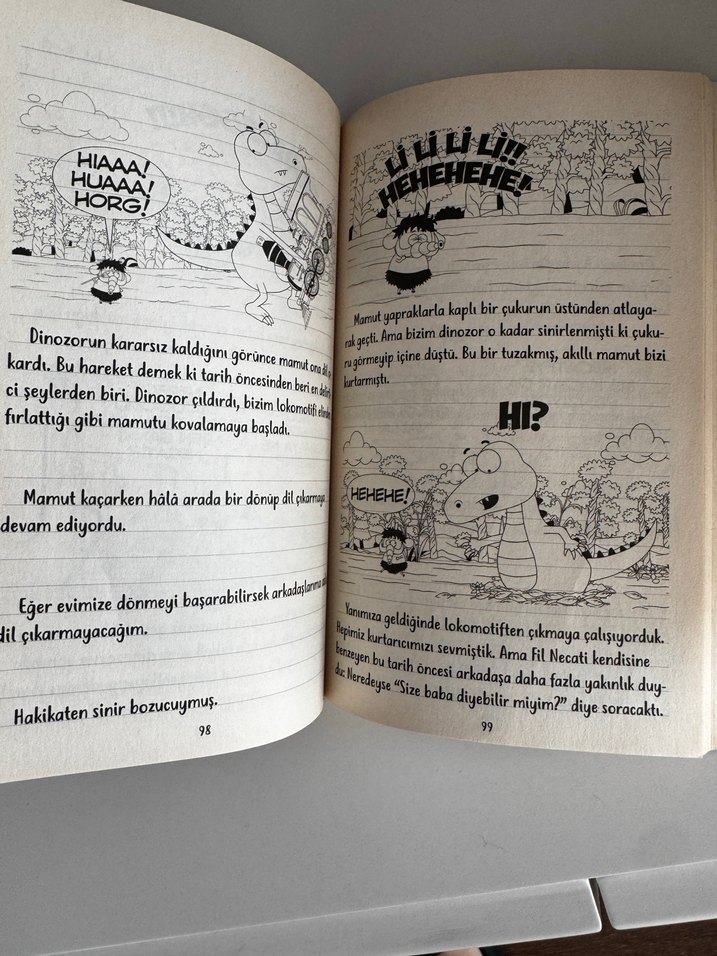 HIAAA!
HUAAA!
HORG!
Dinozorun kararsız kaldığını görünce mamut ona dil
kardı. Bu hareket demek ki tarih öncesinden beri en
ci şeylerden biri. Dinozor çıldırdı, bizim lokomotifi
fırlattığı gibi mamutu kovalamaya başladı.
Mamut kaçarken hâlâ arada bir dönüp dil çıkarmaya
devam ediyordu.
Eğer evimize dönmeyi başarabilirsek arkadaşlarıma
dil çıkarmayacağım.
Hakikaten sinir bozucuymuş.
98
Lİ Lİ Lİ Lİ!!
HEHEHEHE!
Mamut yapraklarla kaplı bir çukurun üstünden atlaya-
rak geçti. Ama bizim dinozor o kadar sinirlenmişti ki çuku-
ru görmeyip içine düştü. Bu bir tuzakmış, akıllı mamut bizi
kurtarmıştı.
HI?
HEHEHE!
Yanımıza geldiğinde lokomotiften çıkmaya çalışıyorduk.
Hepimiz kurtarıcımızı sevmiştik. Ama Fil Necati kendisine
benzeyen bu tarih öncesi arkadaşa daha fazla yakınlık duy-
du: Neredeyse “Size baba diyebilir miyim?” diye soracaktı.
99